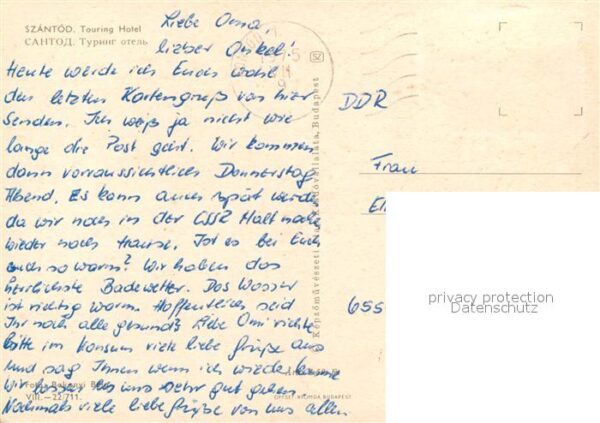 SZÁNTÓD. Touring Hotel
САНТОД. Туринг отель
Liebe Oma,
lieber Onkel!
Heute werde ich Euch wohl
den letzten Kartengruß von hier
senden. Ich weiß ja nicht wie
lange die Post geht. Wir kommen
dann vorraussichtlich Donnerstag
Abend. Es kann auch spät werden
da wir noch in der CSSR Halt machen
wieder nach Hause. Ist es bei Euch
auch so warm? Wir haben das
herrlichste Badewetter. Das Wasser
ist richtig warm. Hoffentlich seid
Ihr noch alle gesund? Liebe Omi richte
bitte im Konsum viele liebe Grüße aus
und sag Ihnen wenn ich wieder komme
Wir lassen es uns sehr gut gehen
Nochmals viele liebe Grüße von uns allen.
Foto: Bakonyi Béla
VIII.—22/711.
Képzőművészeti Alap Kiadóvállalata, Budapest
OFFSET NYOMDA BUDAPEST
DDR
Frau
655
privacy protection
Datenschutz